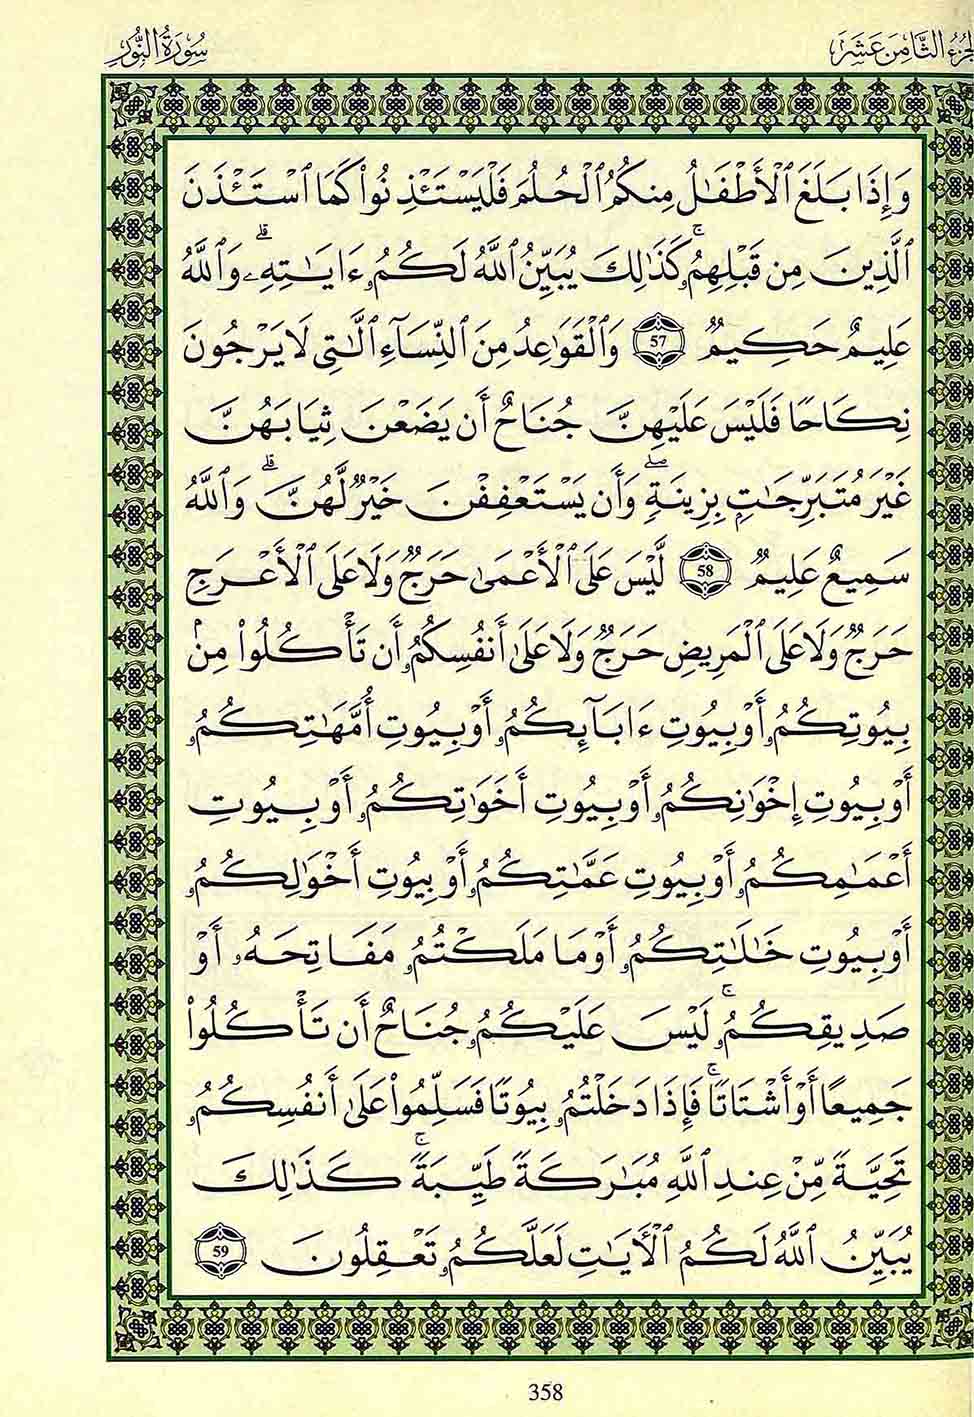 الجزء الثامن عشر
سُورَةُ النُّورِ
وَإِذَا بَلَغَ ٱلْأَطْفَٰلُ مِنكُمُ ٱلْحُلُمَ فَلْيَسْتَـْٔذِنُوا۟ كَمَا ٱسْتَـْٔذَنَ
ٱلَّذِينَ مِن قَبْلِهِمُۥ ۚ كَذَٰلِكَ يُبَيِّنُ ٱللَّهُ لَكُمُۥ ءَايَٰتِهِۦ ۗ وَٱللَّهُ
عَلِيمٌ حَكِيمٌ 57 وَٱلْقَوَٰعِدُ مِنَ ٱلنِّسَآءِ ٱلَّٰتِى لَا يَرْجُونَ
نِكَاحًا فَلَيْسَ عَلَيْهِنَّ جُنَاحٌ أَن يَضَعْنَ ثِيَابَهُنَّ
غَيْرَ مُتَبَرِّجَٰتٍۭ بِزِينَةٍ ۖ وَأَن يَسْتَعْفِفْنَ خَيْرٌ لَّهُنَّ ۗ وَٱللَّهُ
سَمِيعٌ عَلِيمٌ 58 لَّيْسَ عَلَى ٱلْأَعْمَىٰ حَرَجٌ وَلَا عَلَى ٱلْأَعْرَجِ
حَرَجٌ وَلَا عَلَى ٱلْمَرِيضِ حَرَجٌ وَلَا عَلَىٰ أَنفُسِكُمُۥ أَن تَأْكُلُوا۟ مِنۢ
بِيُوتِكُمُۥ أَوْ بِيُوتِ ءَابَآئِكُمُۥ أَوْ بِيُوتِ أُمَّهَٰتِكُمُۥ
أَوْ بِيُوتِ إِخْوَٰنِكُمُۥ أَوْ بِيُوتِ أَخَوَٰتِكُمُۥ أَوْ بِيُوتِ
أَعْمَٰمِكُمُۥ أَوْ بِيُوتِ عَمَّٰتِكُمُۥ أَوْ بِيُوتِ أَخْوَٰلِكُمُۥ
أَوْ بِيُوتِ خَٰلَٰتِكُمُۥ أَوْ مَا مَلَكْتُمُۥ مَفَاتِحَهُۥ أَوْ
صَدِيقِكُمُۥ ۚ لَيْسَ عَلَيْكُمُۥ جُنَاحٌ أَن تَأْكُلُوا۟
جَمِيعًا أَوْ أَشْتَاتًا ۚ فَإِذَا دَخَلْتُمُۥ بِيُوتًا فَسَلِّمُوا۟ عَلَىٰ أَنفُسِكُمُۥ
تَحِيَّةً مِّنْ عِندِ ٱللَّهِ مُبَٰرَكَةً طَيِّبَةً ۚ كَذَٰلِكَ
يُبَيِّنُ ٱللَّهُ لَكُمُ ٱلْأٓيَٰتِ لَعَلَّكُمُۥ تَعْقِلُونَ 59
358